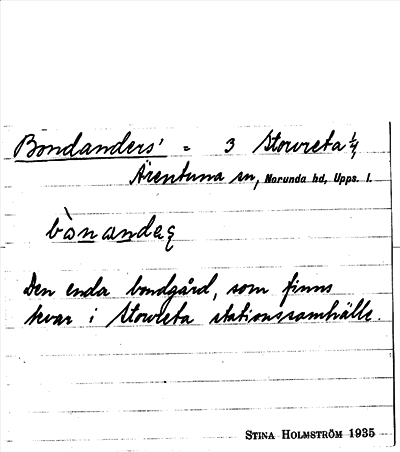 Bondanders' = 3 Storvreta 1/4
Ärentuna sn, Norunda hd, Upps. l.
bònandeʂ
Den enda bondgård, som finns
kvar i Storvreta stationssamhälle.
STINA HOLMSTRÖM 1935